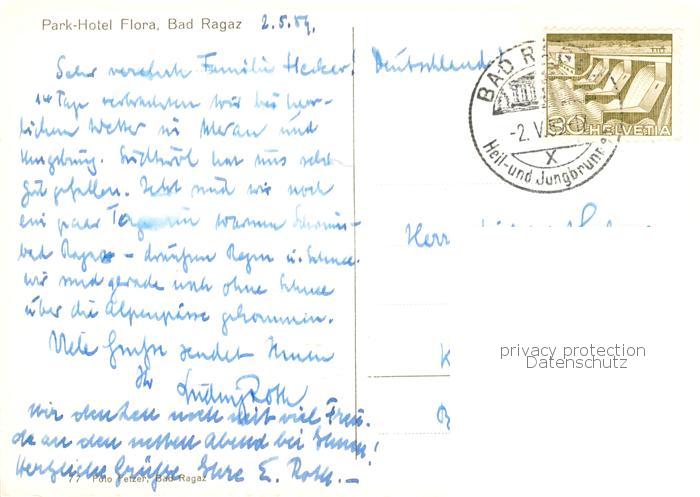 Park-Hotel Flora, Bad Ragaz 2.5.59.
Sehr verehrte Familie Hecker!
14 Tage verbrachten wir bei herr-
lichem Wetter in Meran und
Umgebung. Südtirol hat uns sehr
gut gefallen. Jetzt sind wir noch
ein paar Tage im warmen Schwimm-
bad Ragaz – draußen Regen u. Schnee.
wir sind gerade noch ohne Schnee
über die Alpenpässe gekommen.
Viele Grüße sendet Ihnen
Ihr Ludwig Roth
Wir denken noch mit viel Freu-
de an den netten Abend bei Ihnen!
Herzliche Grüße Ihre E. Roth.–
77 Foto Fetzer, Bad Ragaz
Deutschland!
BAD RAG
-2.V.59
X
Heil-und Jungbrunn
30 HELVETIA
Herr
K
B
privacy protection
Datenschutz